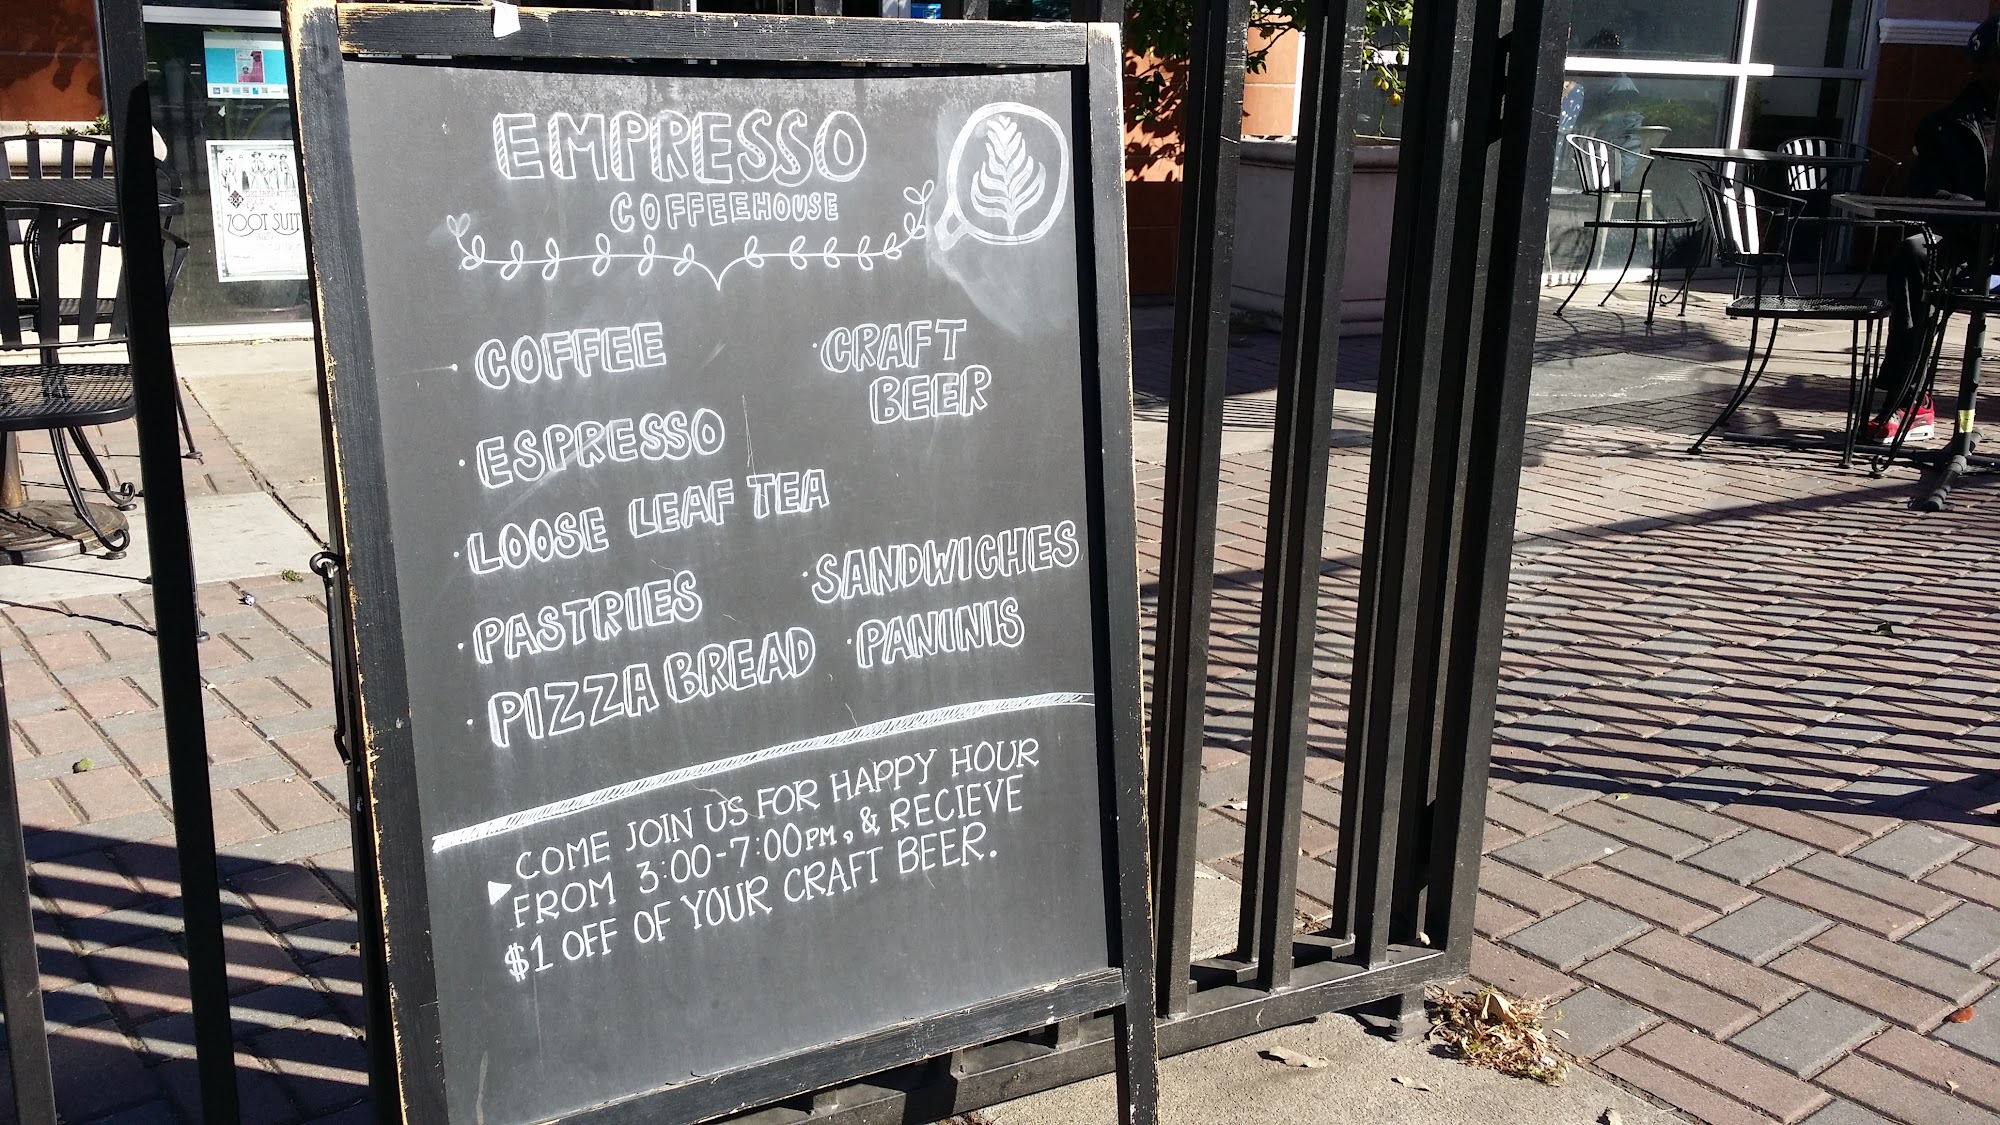 EMPRESSO
COFFEEHOUSE
· COFFEE
· ESPRESSO
· LOOSE LEAF TEA
· PASTRIES
· PIZZA BREAD
· CRAFT
BEER
· SANDWICHES
· PANINIS
COME JOIN US FOR HAPPY HOUR
FROM 3:00-7:00PM, & RECIEVE
$1 OFF OF YOUR CRAFT BEER.
ZOOT SUIT